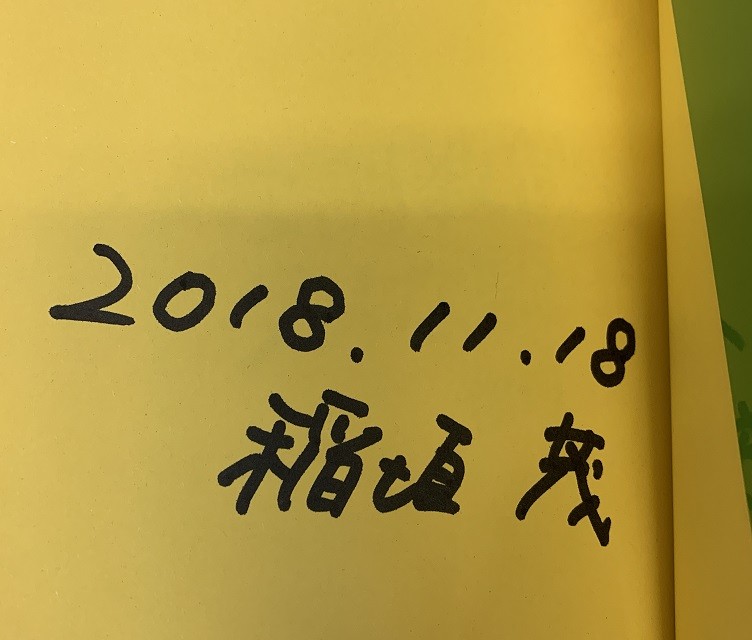 2018.11.18
稲垣 茂